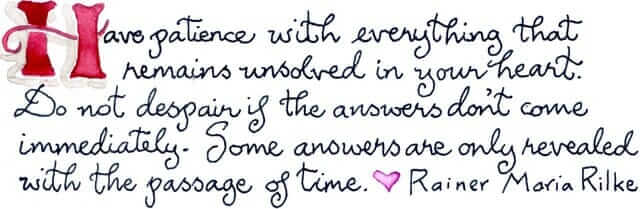 Have patience with everything that
remains unsolved in your heart.
Do not despair if the answers don't come
immediately. Some answers are only revealed
with the passage of time. Rainer Maria Rilke